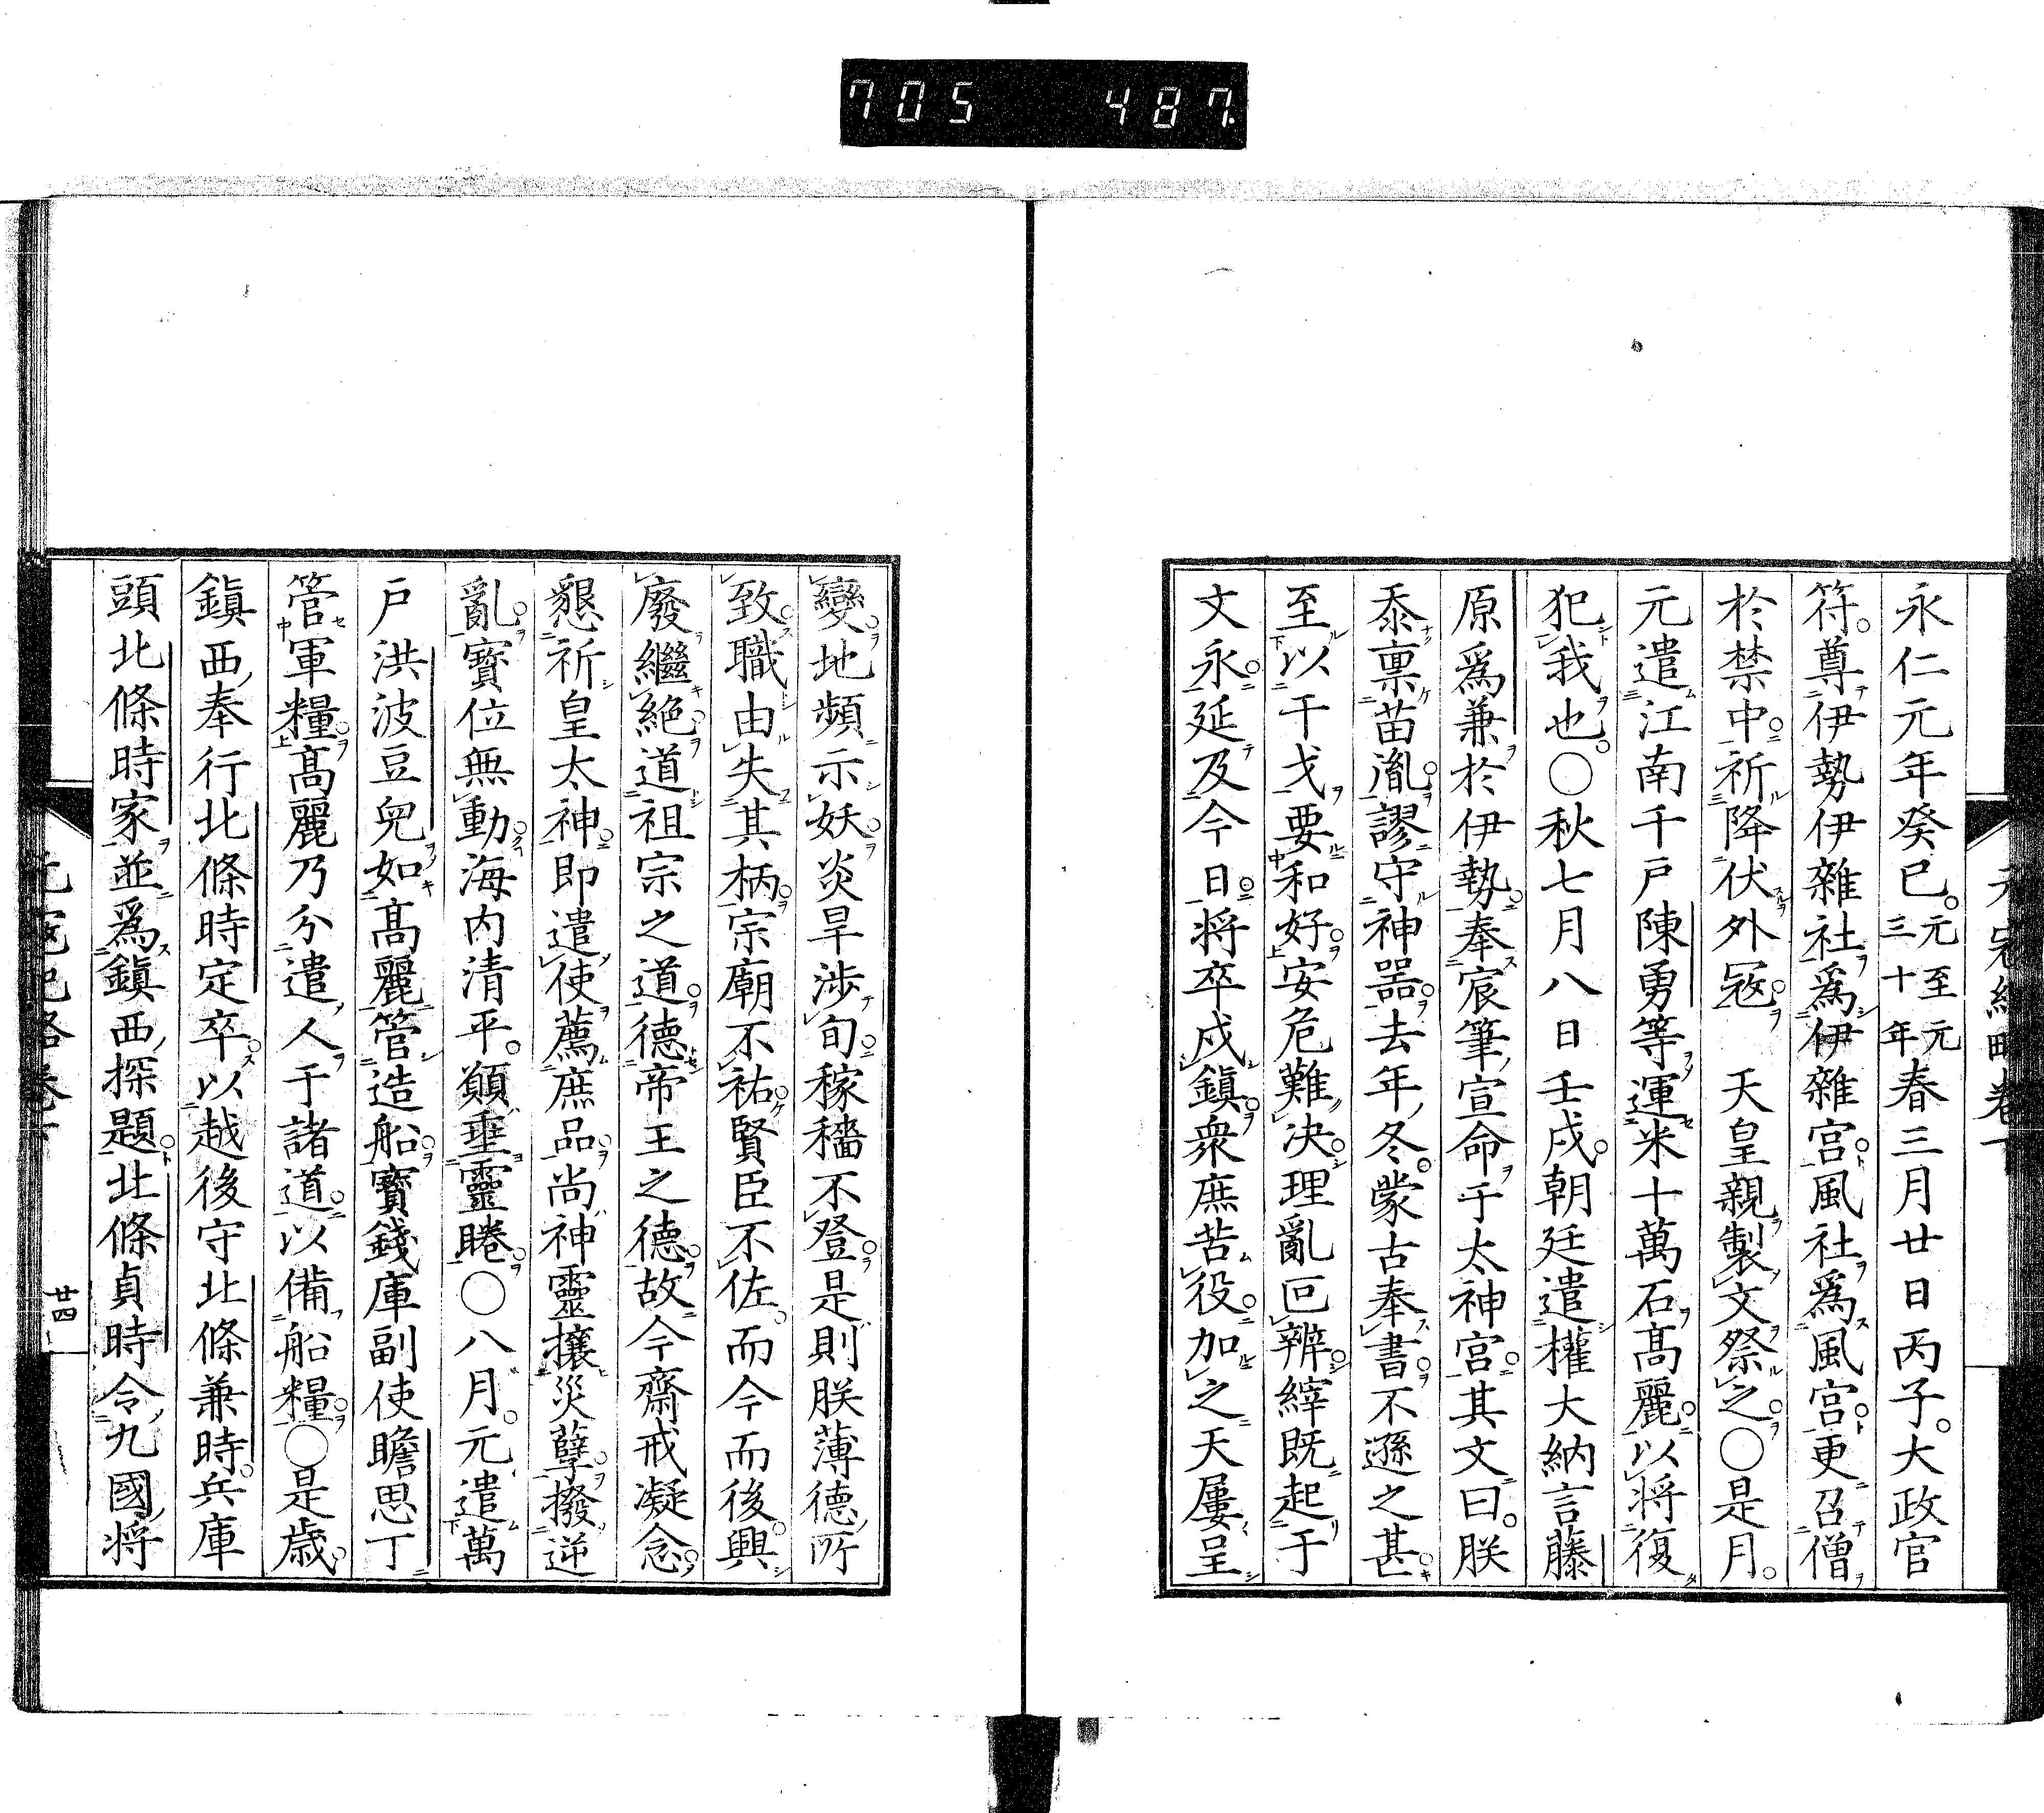 705 487
永仁元年癸巳。元至元三十年春三月廿日丙子。大政官
符。尊伊勢伊雜社爲伊雜宮風社爲風宮更召僧
於禁中祈降伏外寇　天皇親製文祭之〇是月。
元遣江南千戸陳勇等運米十萬石髙麗以将復
犯我也。〇秋七月八日壬戌。朝廷遣權大納言藤
原爲兼於伊勢奉宸筆宣命于太神宮其文曰。朕
忝禀苗胤謬守神器去年冬。蒙古奉書不遜之甚
至以干戈要和好安危難决理亂叵辨繹既起于
文永延及今日将卒戍鎭衆庶苦役加之天屢呈
變地頻示妖炎旱渉旬稼穡不登是則朕薄德所
致職由失其柄宗廟不祐賢臣不佐而今而後興
廢繼絶道祖宗之道德帝王之德故今齋戒凝念
懇祈皇太神即遣使薦庶品尚神靈攘災孽撥逆
亂寳位無動海内清平。願垂靈睠〇八月。元遣萬
戸洪波豆兒如髙麗管造船寳錢庫副使瞻思丁
管軍糧髙麗乃分遣人于諸道以備船糧〇是歳。
鎭西奉行北條時定卒以越後守北條兼時。兵庫
頭北條時家並爲鎭西探題北條貞時令九國将
廿四